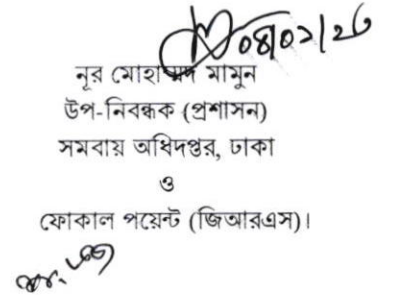 ০৪/০২/২৬
নূর মোহাম্মদ মামুন
উপ-নিবন্ধক (প্রশাসন)
সমবায় অধিদপ্তর, ঢাকা
ও
ফোকাল পয়েন্ট (জিআরএস)।